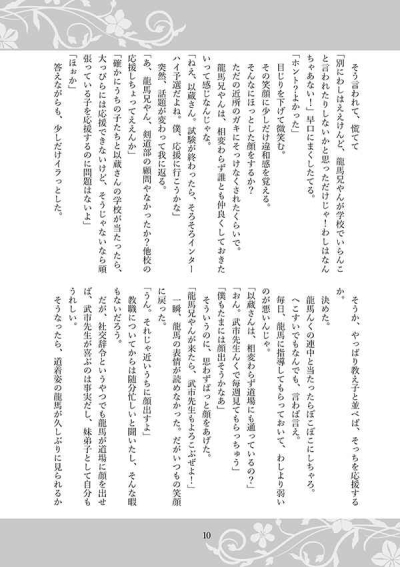 そう言われて、慌てて
「別にわしはえいけんど、龍馬兄やんが学校でいらんこ
と言われたりしないかと思っただけじゃ！わしはなん
ちゃあない！」早口にまくしたてる。
「ホント？よかった」
目じりを下げて微笑む。
その笑顔に少しだけ違和感を覚える。
そんなにほっとした顔をするか？
ただの近所のガキにそっけなくされたくらいで。
龍馬兄やんは、相変わらず誰とも仲良くしておきた
いって感じなんじゃな。
「ねえ、以蔵さん。試験が終わったら、そろそろインター
ハイ予選だよね。僕、応援に行こうかな」
突然、話題が変わって我に返る。
「あ、龍馬兄やん、剣道部の顧問やなかったか？他校の
応援しちょってええんか」
「確かにうちの子たちと以蔵さんの学校が当たったら、
大っぴらには応援できないけど、そうじゃないなら頑
張っている子を応援するのに問題はないよ」
「ほぉか」
答えながらも、少しだけイラっとした。
そうか、やっぱり教え子と並べば、そっちを応援する
か。
決めた。
龍馬んくの連中と当たったらぼこぼこにしちゃろ。
へこすいでもなんでも、言わば言え。
毎日、龍馬に指導してもらっておいて、わしより弱い
のが悪いんじゃ。
「以蔵さんは、相変わらず道場にも通っているの？」
「おん。武市先生んくで毎週見てもらっちゅう」
「僕もたまには顔出そうかなあ」
そういうのに、思わずぱっと顔をあげた。
「龍馬兄やんが来たら、武市先生もよろこぶぜよ！」
一瞬、龍馬の表情が読めなかった。だがいつもの笑顔
に戻った。
「うん。それじゃ近いうちに顔出すよ」
教職についてからは随分忙しいと聞いたし、そんな暇
もないだろう。
だが、社交辞令というやつでも龍馬が道場に顔を出せ
ば、武市先生が喜ぶのは事実だし、妹弟子として自分も
うれしい。
そうなったら、道着姿の龍馬が久しぶりに見られるか
10